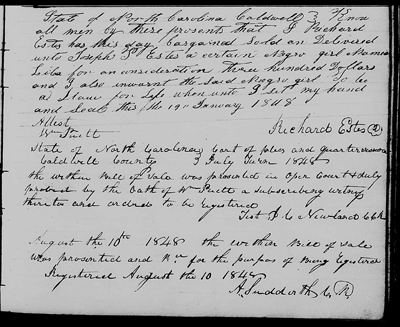 State of North Carolina Caldwell } Know
all men by these presents that I Richard
Estes has this day bargained sold an Delivered
unto Joseph P Estes a certain Negro girl Named
for an consideration three hundred Dollars
and I also warrant the said Negro girl to be
a Slave for life when unto I set my hand
and Seal this the 19th January 1848
Attest
Wm Puett
Richard Estes
State of North Carolina Cort of pleas and quarter
Caldwell County } July Term 1848
the within bill of Sale was presented in Open Court & duly
proved by the Oath of Wm Puett a subscribing witness
thereto and ordered to be registered
Test Newland Clk
August the 10th 1848 the within Bill of sale
was presented and for the purpos of being
Registered August the 10 1848
A. Sudderth